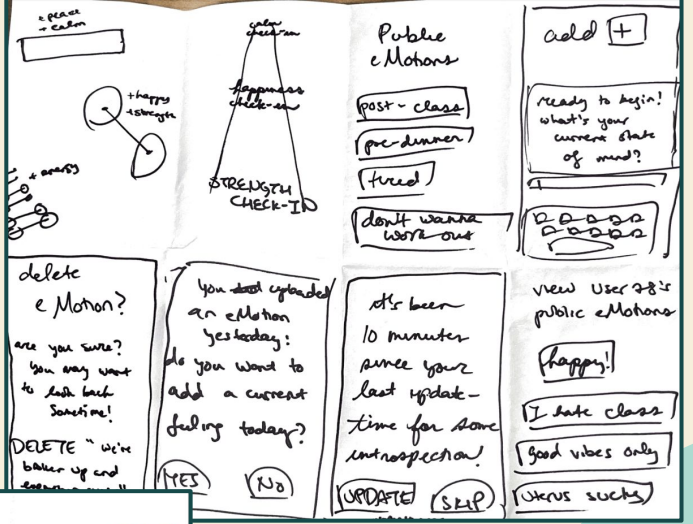 + peace
+ calm
+ happy
+ strength
+ energy
calm
check-in
happiness
check-in
STRENGTH
CHECK-IN
Public
eMotions
post-class
pre-dinner
tired
don't wanna
work out
add +
ready to begin!
what's your
current state
of mind?
delete
eMotion?
are you sure?
you may want
to look back
sometime!
DELETE "we're
you uploaded
an eMotion
yesterday:
do you want to
add a current
feeling today?
YES
NO
it's been
10 minutes
since your
last update-
time for some
introspection!
UPDATE
SKIP
view user 28's
public eMotions
happy!
I hate class
good vibes only
uterus sucks